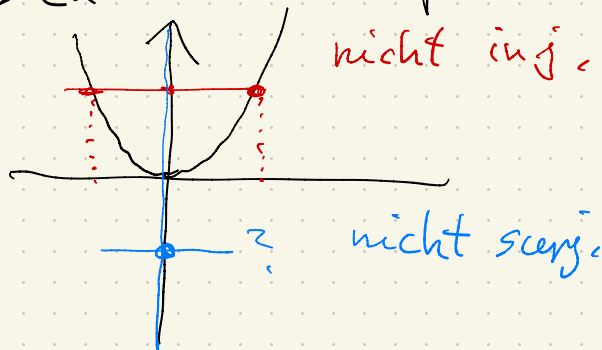 nicht inj.
?
nicht surj.